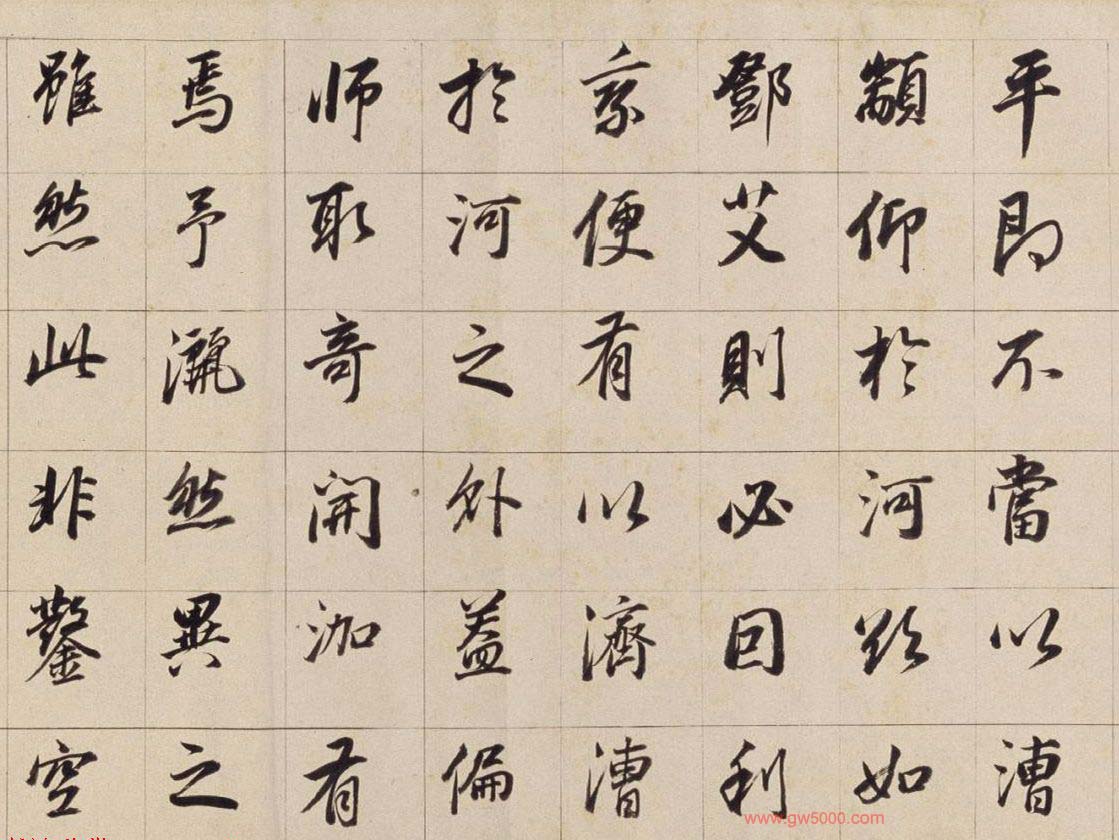 平即不當以漕
顓仰於河欤如
鄧艾則必因利
乘便有以濟漕
於河之外蓋偏
师取奇開泇有
焉予灑然異之
雖然此非鑿空
www.gw5000.com